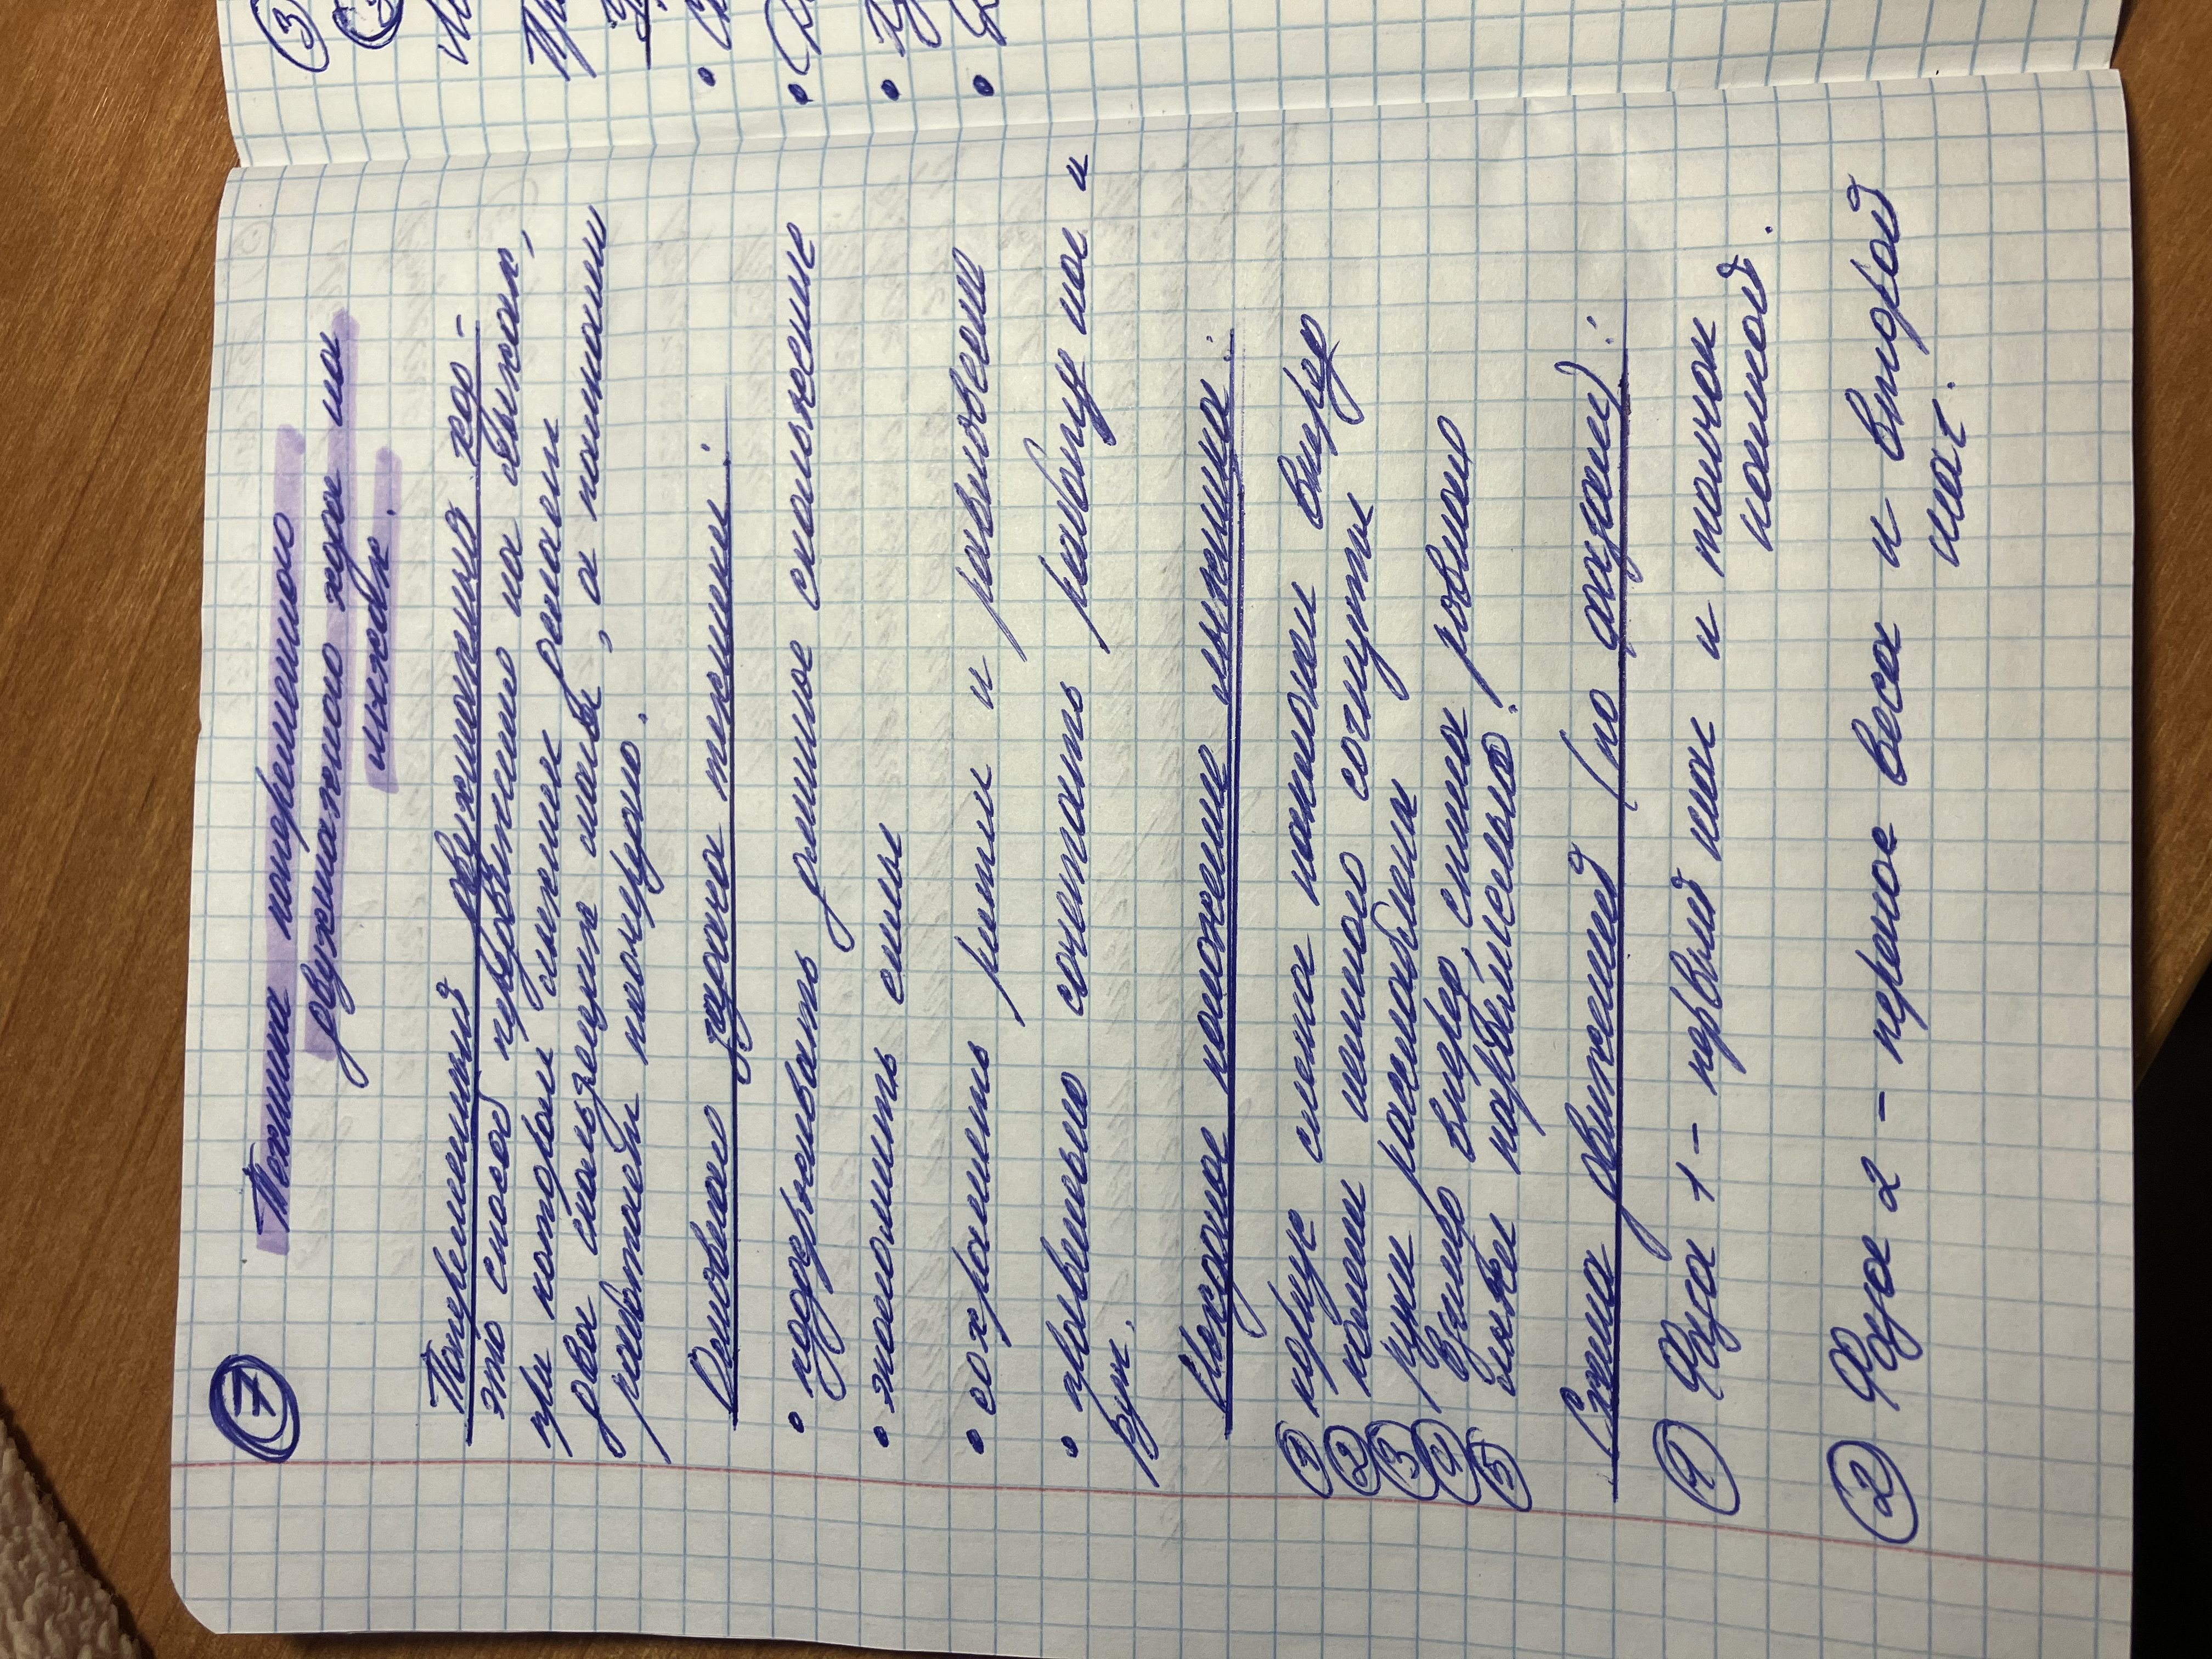 7
Техника попеременного
двухшажного хода на
лыжах.
Попеременный двухшажный ход -
это способ передвижения на лыжах,
при котором лыжник делает
два скользящих шага, а палками
работает поочерёдно.
Основная задача техники:
• поддерживать длинное скольжение
• экономить силы
• сохранить ритм и равновесие
• правильно сочетать работу ног и
рук.
Исходное положение лыжника:
1 корпус слегка наклонён вперёд
2 колени немного согнуты
3 руки расслаблены
4 Взгляд вперёд, спина ровная
5 лыжи параллельно.
Схема движений (по фазам):
1 Фаза 1 - первый шаг и толчок
палкой.
2 Фаза 2 - перенос веса и второй
шаг.
3